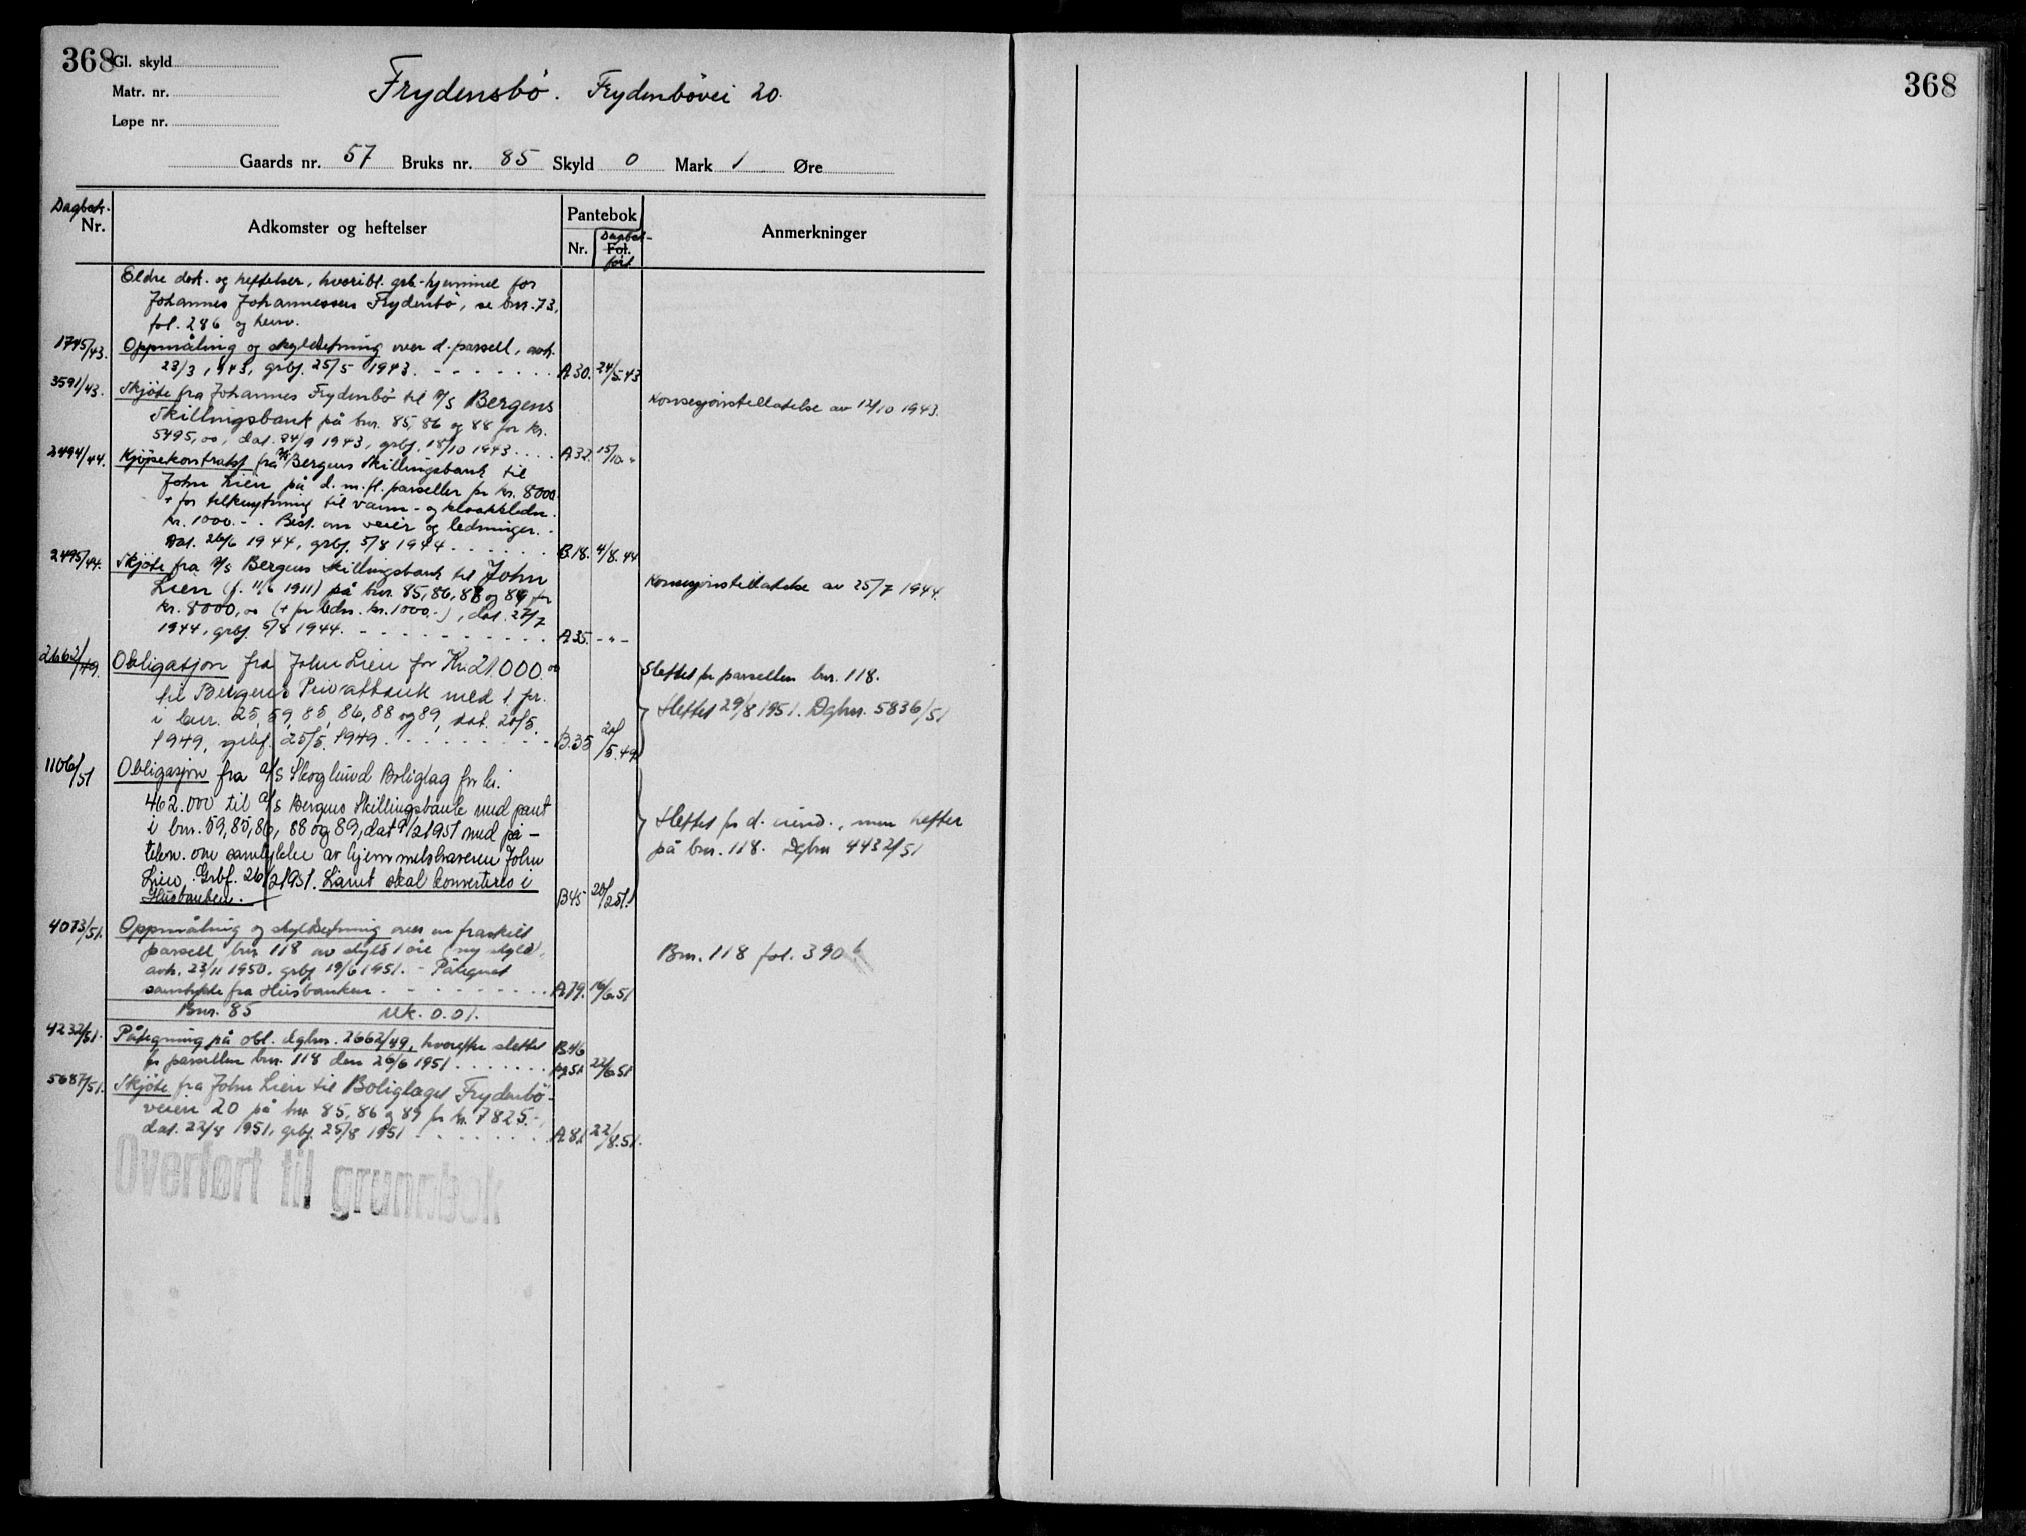 368
Gl. skyld
Matr. nr.
Løpe nr.
Frydensbö. Frydenbövei 20.
Gaards nr. 57 Bruks nr. 85 Skyld 0 Mark 1 Øre
Dagbok-
Nr.
Adkomster og heftelser
Pantebok
Nr.
Dagbok-
Fol.
ført
Anmerkninger
Eldre dok. og heftelser, hvoribl. grb.-hjemmel for
Johannes Johannessen Frydenbö, se bnr. 73,
fol. 286 og henv.
1745/43. Oppmåling og skyldsetning over d. parsell, avh.
23/3 1943, grbf. 25/5 1943. A.30. 24/5.43
3591/43. Skjöte fra Johannes Frydenbö til A/S Bergens
Skillingsbank på bnr. 85, 86 og 88 for kr.
5495,00, dat. 24/9 1943, grbf. 18/10 1943. A.32. 15/10 "
Konsesjonstillatelse av 12/10 1943.
2494/44. Kjöpekontrakt fra A/S Bergens Skillingsbank til
John Lien på d. m. fl. parseller for kr. 8000
+ for tilknytning til vann- og kloakkledn.
kr. 1000.-. Best. om veier og ledninger.
Dat. 26/6 1944, grbf. 5/8 1944. B.18. 4/8.44
2495/44. Skjöte fra A/S Bergens Skillingsbank til John
Lien (f. 11/6 1911) på bnr. 85, 86, 88 og 89 for
kr. 8000,00 (+ for ledn. kr. 1000.-), dat. 27/7
1944, grbf. 5/8 1944. A.35. - " -
Konsesjonstillatelse av 25/7 1944.
2662/49. Obligasjon fra John Lien for Kr. 21.000.00
til Bergens Privatbank med 1. pr.
i bnr. 25, 59, 85, 86, 88 og 89, dat. 20/5.
1949, grbf. 25/5. 1949. B.35 20/5.49
Slettet for parsellen bnr. 118.
Slettet 29/8 1951. Dgbnr. 5836/51
1106/51 Obligasjon fra A/S Skoglund Boliglag for kr.
462.000 til A/S Bergens Skillingsbank med pant
i bnr. 59, 85, 86, 88 og 89, dat 9/2 1951 med på-
tekn. om samtykke av hjemmelshaveren John
Lien. Grbf. 26/2 1951. Lånet skal konverteres i
Husbanken. B45 20/2 51.
Slettet for d. eiend., men hefter
på bnr. 118. Dgbnr 4432/51
4073/51. Oppmåling og skyldsetning over en fraskilt
parsell, bnr. 118 av skyld 1 öre (ny skyld),
avh. 23/11 1950. grbf. 19/6 1951. - Påtegnet
samtykke fra Husbanken. A.79. 16/6.51
Bnr. 118 fol. 390 b
Bnr. 85 Mk. 0.01.
4232/51. Påtegning på obl. dgbnr. 2662/49, hvorefter slettet
for parsellen bnr. 118 den 26/6 1951. B.46 22/6.51
5687/51. Skjöte fra John Lien til Boliglaget Frydenbö-
veien 20 på bnr 85, 86 og 89 for kr. 7825.-,
dat. 22/8 1951, grbf. 25/8 1951. A.81. 22/8.51.
Overført til grunnbok
368